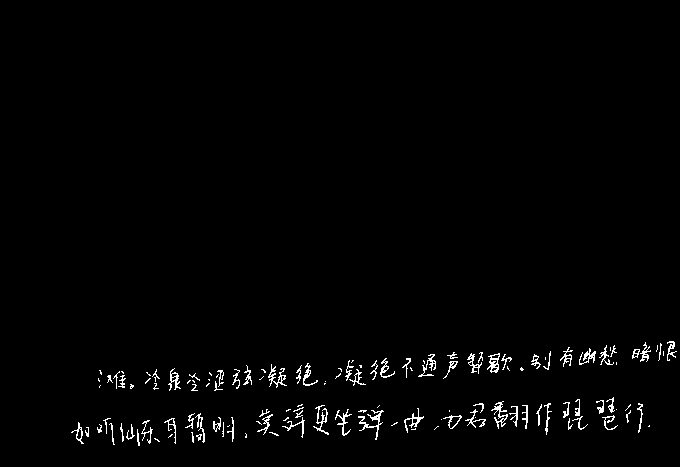 滩。冷泉冷涩弦凝绝,凝绝不通声暂歇.别有幽愁 暗恨
如听仙乐耳暂明,莫辞更坐弹一曲,为君翻作琵琶行.